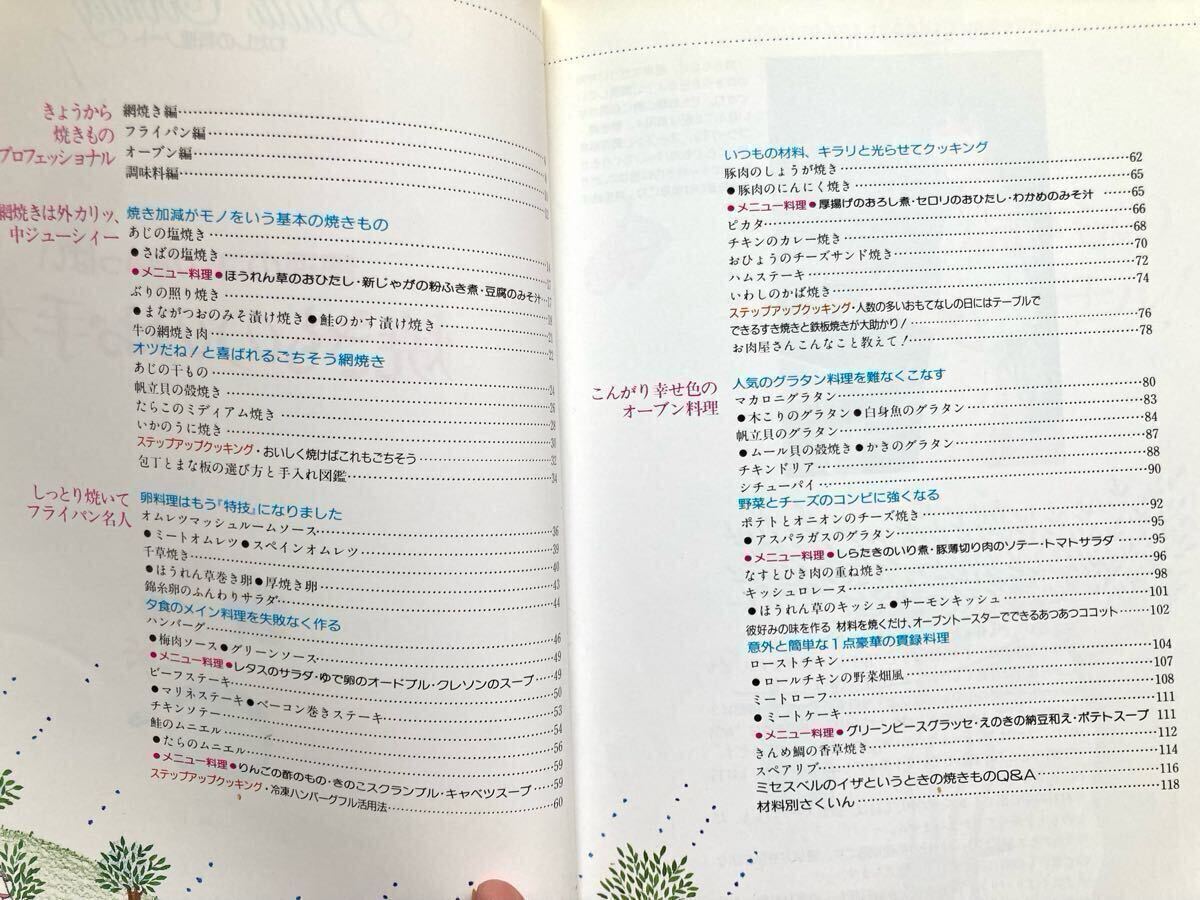 きょうから
焼きもの
プロフェッショナル
網焼き編
フライパン編
オーブン編
調味料編
網焼きは外カリッ、
中ジューシィー
焼き加減がモノをいう基本の焼きもの
あじの塩焼き 14
●さばの塩焼き 17
●メニュー料理●ほうれん草のおひたし・新じゃがの粉ふき煮・豆腐のみそ汁 17
ぶりの照り焼き 18
●まながつおのみそ漬け焼き●鮭のかす漬け焼き 21
牛の網焼き肉 22
オツだね!と喜ばれるごちそう網焼き
あじの干もの 24
帆立貝の殻焼き 26
たらこのミディアム焼き 28
いかのうに焼き 30
ステップアップクッキング・おいしく焼けばこれもごちそう 32
包丁とまな板の選び方と手入れ図鑑 34
しっとり焼いて
フライパン名人
卵料理はもう『特技』になりました
オムレツマッシュルームソース 36
●ミートオムレツ●スペインオムレツ 39
千草焼き 40
●ほうれん草巻き卵●厚焼き卵 43
錦糸卵のふんわりサラダ 44
夕食のメイン料理を失敗なく作る
ハンバーグ 46
●梅肉ソース●グリーンソース 49
●メニュー料理●レタスのサラダ・ゆで卵のオードブル・クレソンのスープ 49
ビーフステーキ 50
●マリネステーキ●ベーコン巻きステーキ 53
チキンソテー 54
鮭のムニエル 56
●たらのムニエル 59
●メニュー料理●りんごの酢のもの・きのこスクランブル・キャベツスープ 59
ステップアップクッキング・冷凍ハンバーグフル活用法 60
いつもの材料、キラリと光らせてクッキング
豚肉のしょうが焼き 62
●豚肉のにんにく焼き 65
●メニュー料理●厚揚げのおろし煮・セロリのおひたし・わかめのみそ汁 65
ピカタ 66
チキンのカレー焼き 68
おひょうのチーズサンド焼き 70
ハムステーキ 72
いわしのかば焼き 74
ステップアップクッキング・人数の多いおもてなしの日にはテーブルで
できるすき焼きと鉄板焼きが大助かり! 76
お肉屋さんこんなこと教えて! 78
こんがり幸せ色の
オーブン料理
人気のグラタン料理を難なくこなす
マカロニグラタン 80
●木こりのグラタン●白身魚のグラタン 83
帆立貝のグラタン 84
●ムール貝の殻焼き●かきのグラタン 87
チキンドリア 88
シチューパイ 90
野菜とチーズのコンビに強くなる
ポテトとオニオンのチーズ焼き 92
●アスパラガスのグラタン 95
●メニュー料理●しらたきのいり煮・豚薄切り肉のソテー・トマトサラダ 95
なすとひき肉の重ね焼き 96
キッシュロレーヌ 98
●ほうれん草のキッシュ●サーモンキッシュ 101
彼好みの味を作る 材料を焼くだけ、オーブントースターでできるあつあつココット 102
意外と簡単な1点豪華の貫録料理
ローストチキン 104
●ロールチキンの野菜畑風 107
ミートローフ 108
●ミートケーキ 111
●メニュー料理●グリーンピースグラッセ・えのきの納豆和え・ポテトスープ 111
きんめ鯛の香草焼き 112
スペアリブ 114
ミセスベルのイザというときの焼きものQ&A 116
材料別さくいん 118